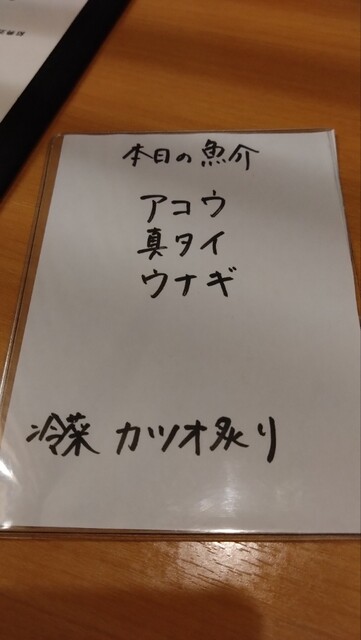 本日の魚介
アコウ
真タイ
ウナギ
冷菜 カツオ炙り